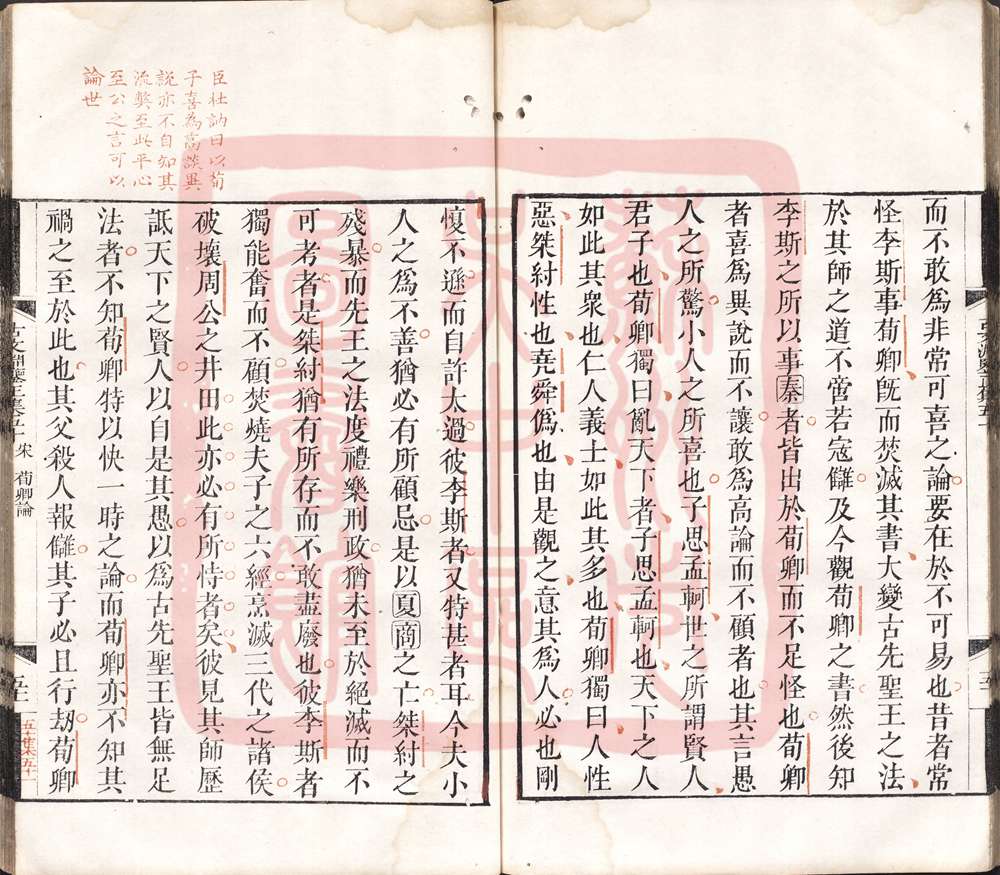 而不敢爲非常可喜之論要在於不可易也昔者常
怪李斯事荀卿旣而焚滅其書大變古先聖王之法
於其師之道不啻若寇讎及今觀荀卿之書然後知
李斯之所以事秦者皆出於荀卿而不足怪也荀卿
者喜爲異說而不讓敢爲高論而不顧者也其言愚
人之所驚小人之所喜也子思孟軻世之所謂賢人
君子也荀卿獨曰亂天下者子思孟軻也天下之人
如此其衆也仁人義士如此其多也荀卿獨曰人性
惡桀紂性也堯舜僞也由是觀之意其爲人必也剛
愎不遜而自許太過彼李斯者又特甚者耳今夫小
人之爲不善猶必有所顧忌是以夏商之亡桀紂之
殘暴而先王之法度禮樂刑政猶未至於絕滅而不
可考者是桀紂猶有所存而不敢盡廢也彼李斯者
獨能奮而不顧焚燒夫子之六經烹滅三代之諸侯
破壞周公之井田此亦必有所恃者矣彼見其師歷
詆天下之賢人以自是其愚以爲古先聖王皆無足
法者不知荀卿特以快一時之論而荀卿亦不知其
禍之至於此也其父殺人報讎其子必且行刼荀卿
臣杜訥曰以荀
子喜為高談異
說亦不自知其
流獘至此平心
至公之言可以
論世
宋 荀卿論